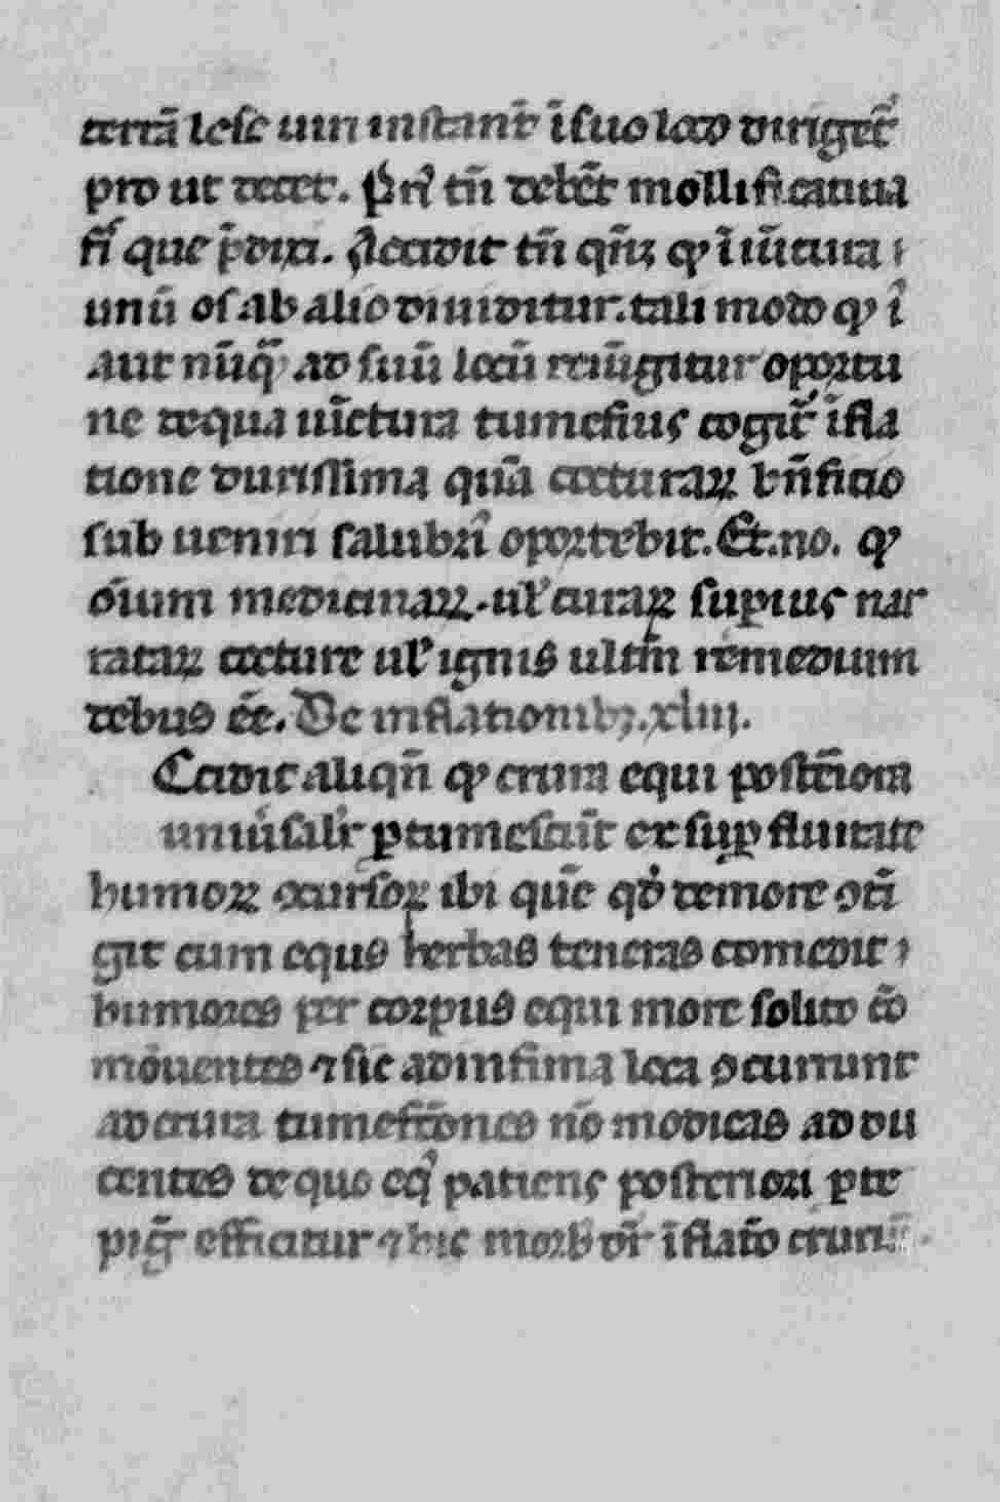 terrã lese uiri instant̃ ĩ suo loco dirigeť
pro ut decet. Pri᷒ tñ debẽt mollificatiua
fi᷒ que p̃dixi. Accidit tñ qñqꝫ ꝙ ĩ iũctura
unũ os ab alio diuiditur. tali modo ꝙ ĩ
aut nũq̃ ad suũ locũ reiũgitur oportu
ne dequa uĩctura tumefius cogiť ĩfla
tione durissima quã cocturaꝝ bñficio
sub ueniri salubrĩ oportebit. Et. no. ꝙ
oĩum medicinaꝝ. ul̓ curaꝝ suꝑius nar
rataꝝ cocture ul̓ ignis ultĩm remedium
debus eẽ. De inflationibꝫ. xliiij.
Ccidit aliqñ ꝙ crura equi postẽiora
uniũsalr̃ ꝑtumescũt ex suꝑ fluitate
humoꝝ ꝯcursoꝝ ibi quẽ qď demore ꝯtĩ
git cum equs herbas teneras comedit ⁊
humores per corpus equi more solito cõ
mõuentes ⁊ sic ad infima loca ꝯcurrunt
ad crura tumefcõnes nõ modicas addu
centes de quo eq᷒ patiens posteriori ꝑte
pigr̃ efficitur ⁊ hic morb᷒ dr̃ ĩflatõ cruriũ